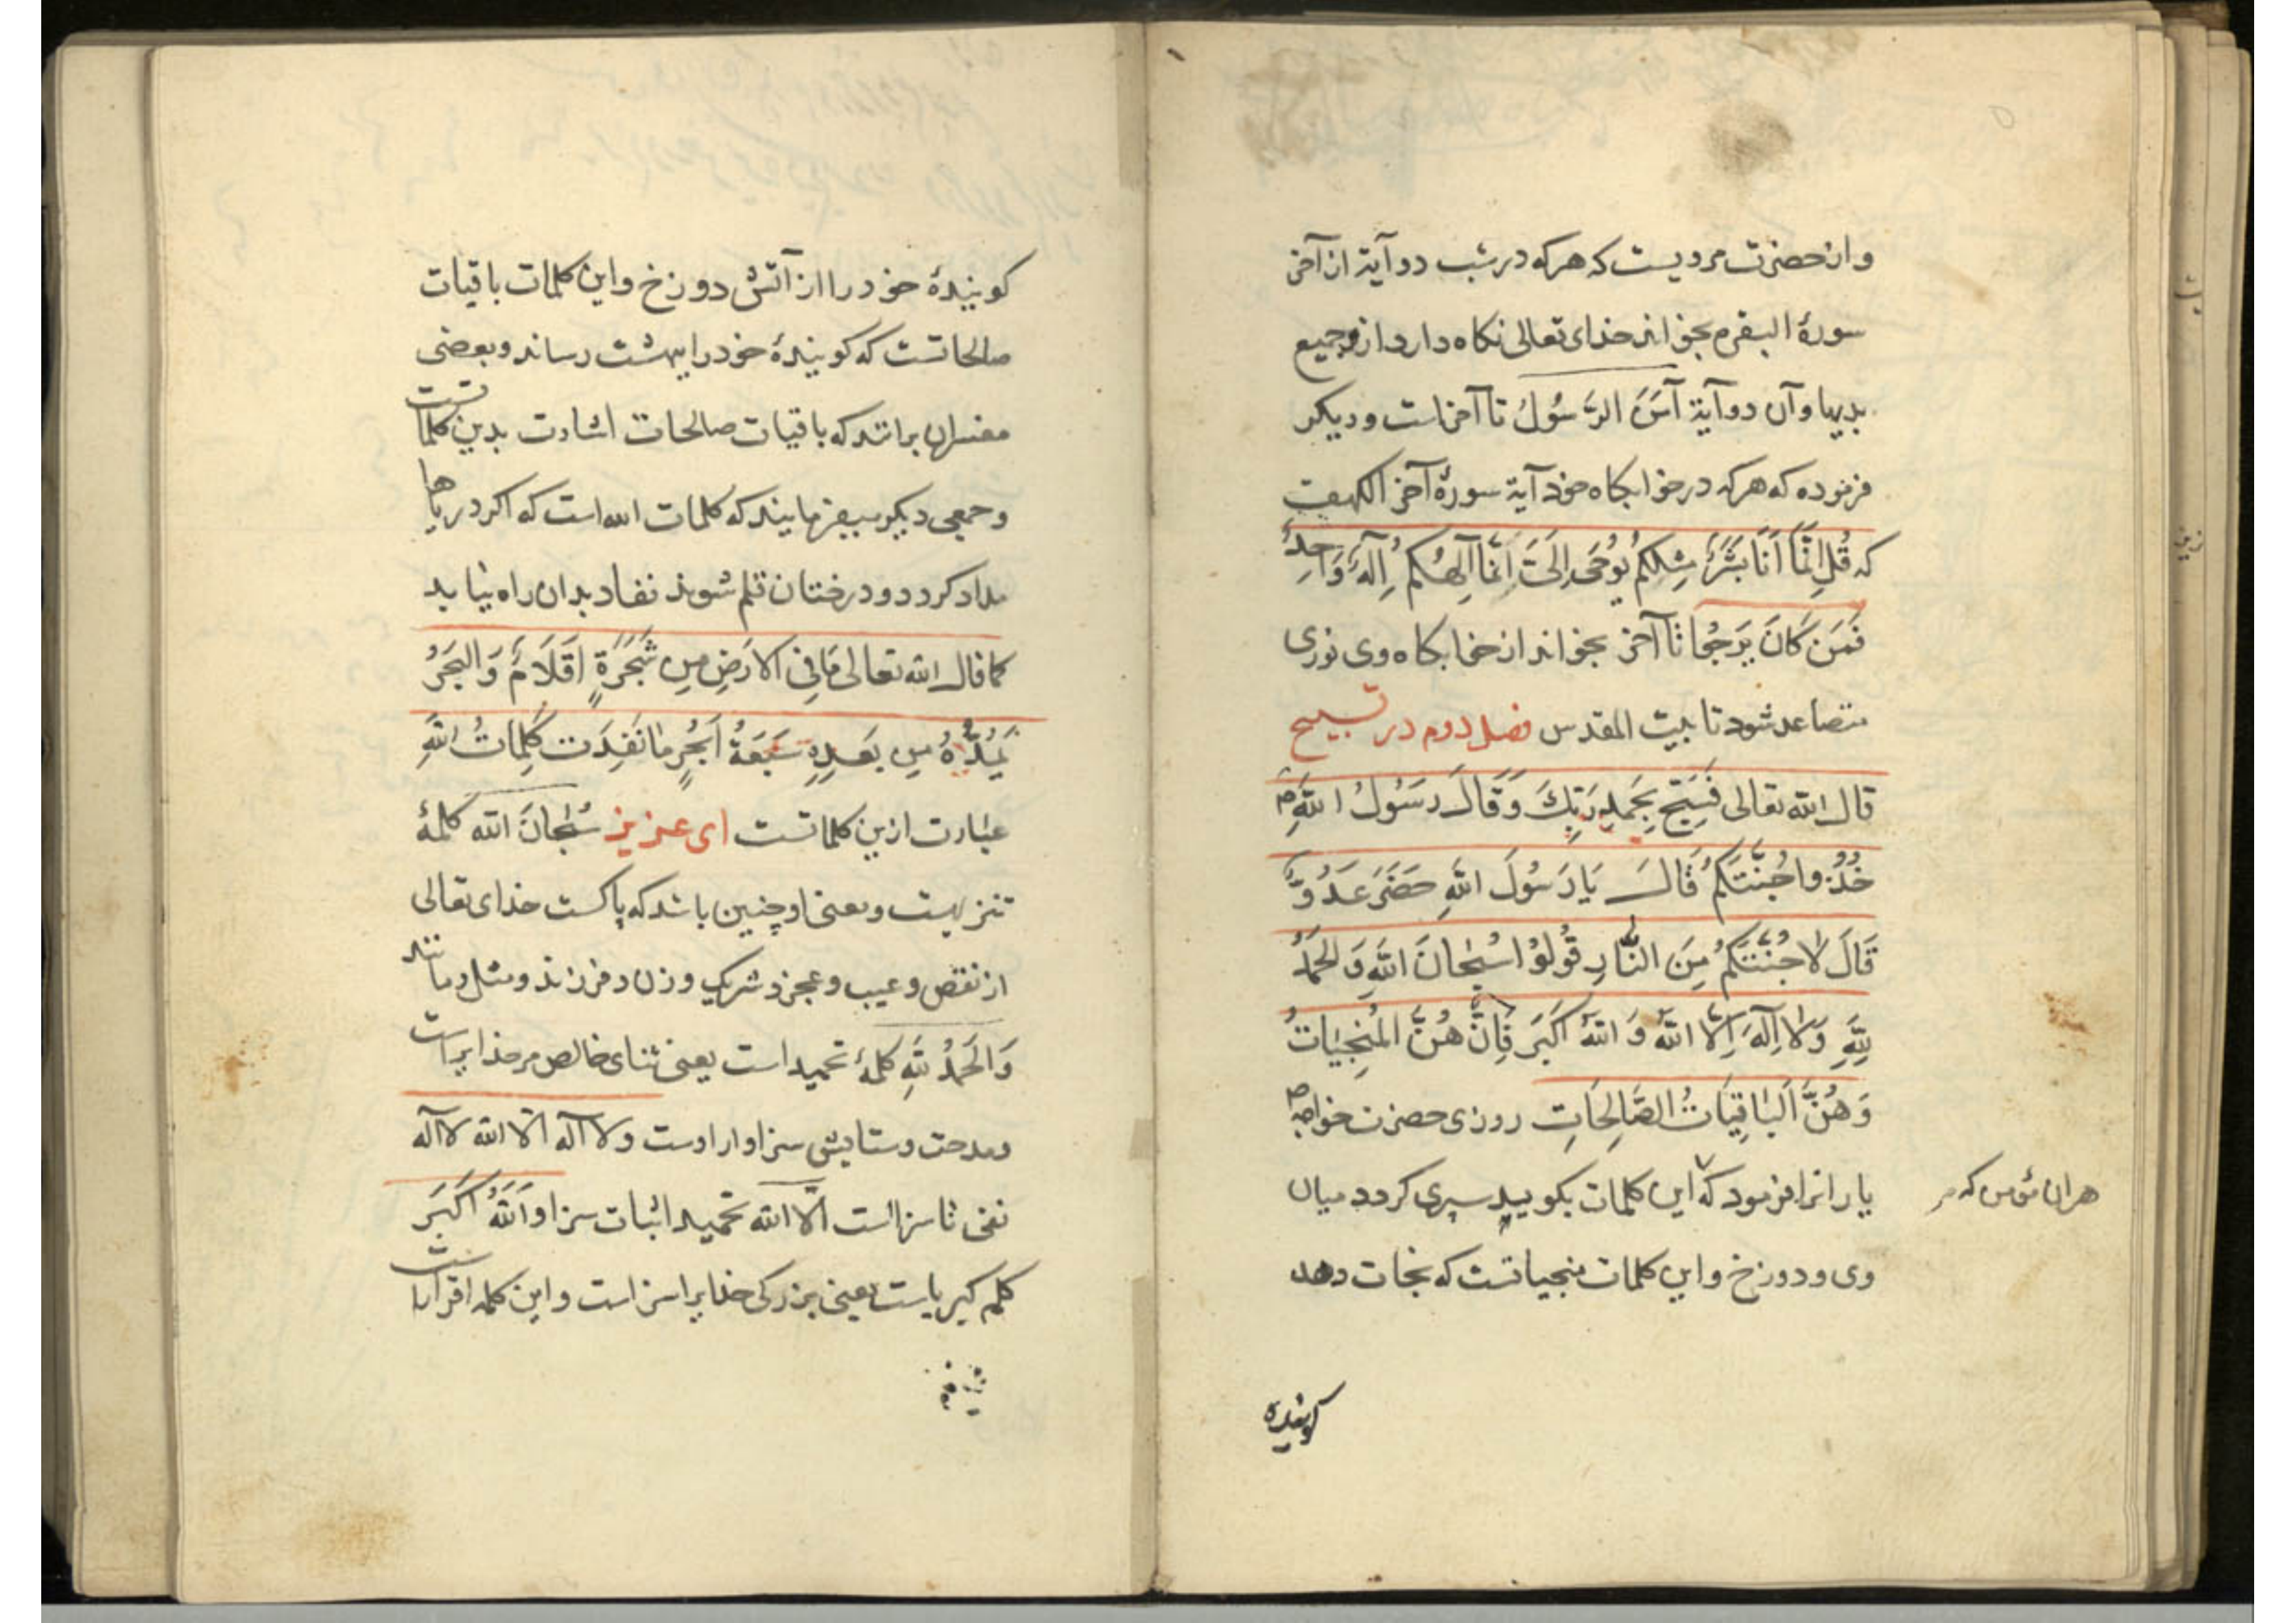 وازحضرت مرویست که هرکه در شب دو آیة از آخر
سورهٔ البقره بخواند خدای تعالی نکاه دارد از وجمیع
بدیها و آن دو آیة آمَنَ الرَّسُولُ تا آخراست و دیکر
فرموده که هرکه در خوابکاه خود آیة سورهٔ آخر الکهف
که قُل اِنَّمَا اَنَا بَشَرٌ مِثلُکُم یُوحَی اِلَیَّ اَنَّمَا اَلِهُکُم اِلَهٌ وَاحِدٌ
فَمَن کَانَ یَرجُوا تا آخر بخواند از خابکاه وی نوری
متصاعد شود تا بیت المقدس فصل دوم در تسبیح
قال الله تعالی فَسَبِّح بِحَمدِ رَبِّکَ وَقَالَ رَسُولُ اللهِ ص
خُذُوا جُنَّتَکُم قَالَ یَا رَسُولَ اللهِ حَضَرَ عَدُوٌّ
قَالَ لا جُنَّتَکُم مِنَ النَّارِ قُولُوا سُبحَانَ اللهِ وَالحَمدُ
لِلَّهِ وَلا اِلَهَ اِلَّا اللهُ وَ اللهُ اَکبَر فَاِنَّ هُنَّ المُنجِیَاتُ
وَهُنَّ اَلبَاقِیَاتُ الصَّالِحَاتِ روزی حضرت خواجه ص
یارانرا فرمود که این کلمات بکویید سپری کردد میان
هران مؤمن که
وی و دوزخ و این کلمات منجیاتست که نجات دهد
کوینده
کویندهٔ خود را از آتش دوزخ و این کلمات باقیات
صالحاتست که کویندهٔ خود را ببهشت رساند و بعضی
مفسران برانند که باقیات صالحات اشارت بدین کلماتست
و جمعی دیکر میفرمایند که کلمات الله است که اکر دریاها
مداد کردد و درختان قلم شوند نفاد بدان راه نیابد
کما قال الله تعالی مَا فِی الاَرضِ مِن شَجَرَةٍ اَقلَامٌ وَالبَحرُ
یَمُدُّهُ مِن بَعدِهِ سَبعَةُ اَبحُرٍ مَا نَفِدَت کَلِمَاتُ اللهِ
عبارت ازین کلماتست ای عزیز سُبحَانَ الله کلمهٔ
تنزیهست و معنی او چنین باشد که پاکست خدای تعالی
از نقص و عیب و عجز و شریک و زن و فرزند و مثل و مانند
وَالحَمدُ لِلَّهِ کلمهٔ تحمید است یعنی ثنای خالص مر خدایراست
و مدحت و ستایش سزاوار اوست و لا اله الا الله لا اله
نفی ناسزااست الّا الله تحمید اثبات سزا و اَللهُ اَکبَر
کلم کبریاست یعنی بزرکی خدایرا سزاست و این کلمه اقراریست